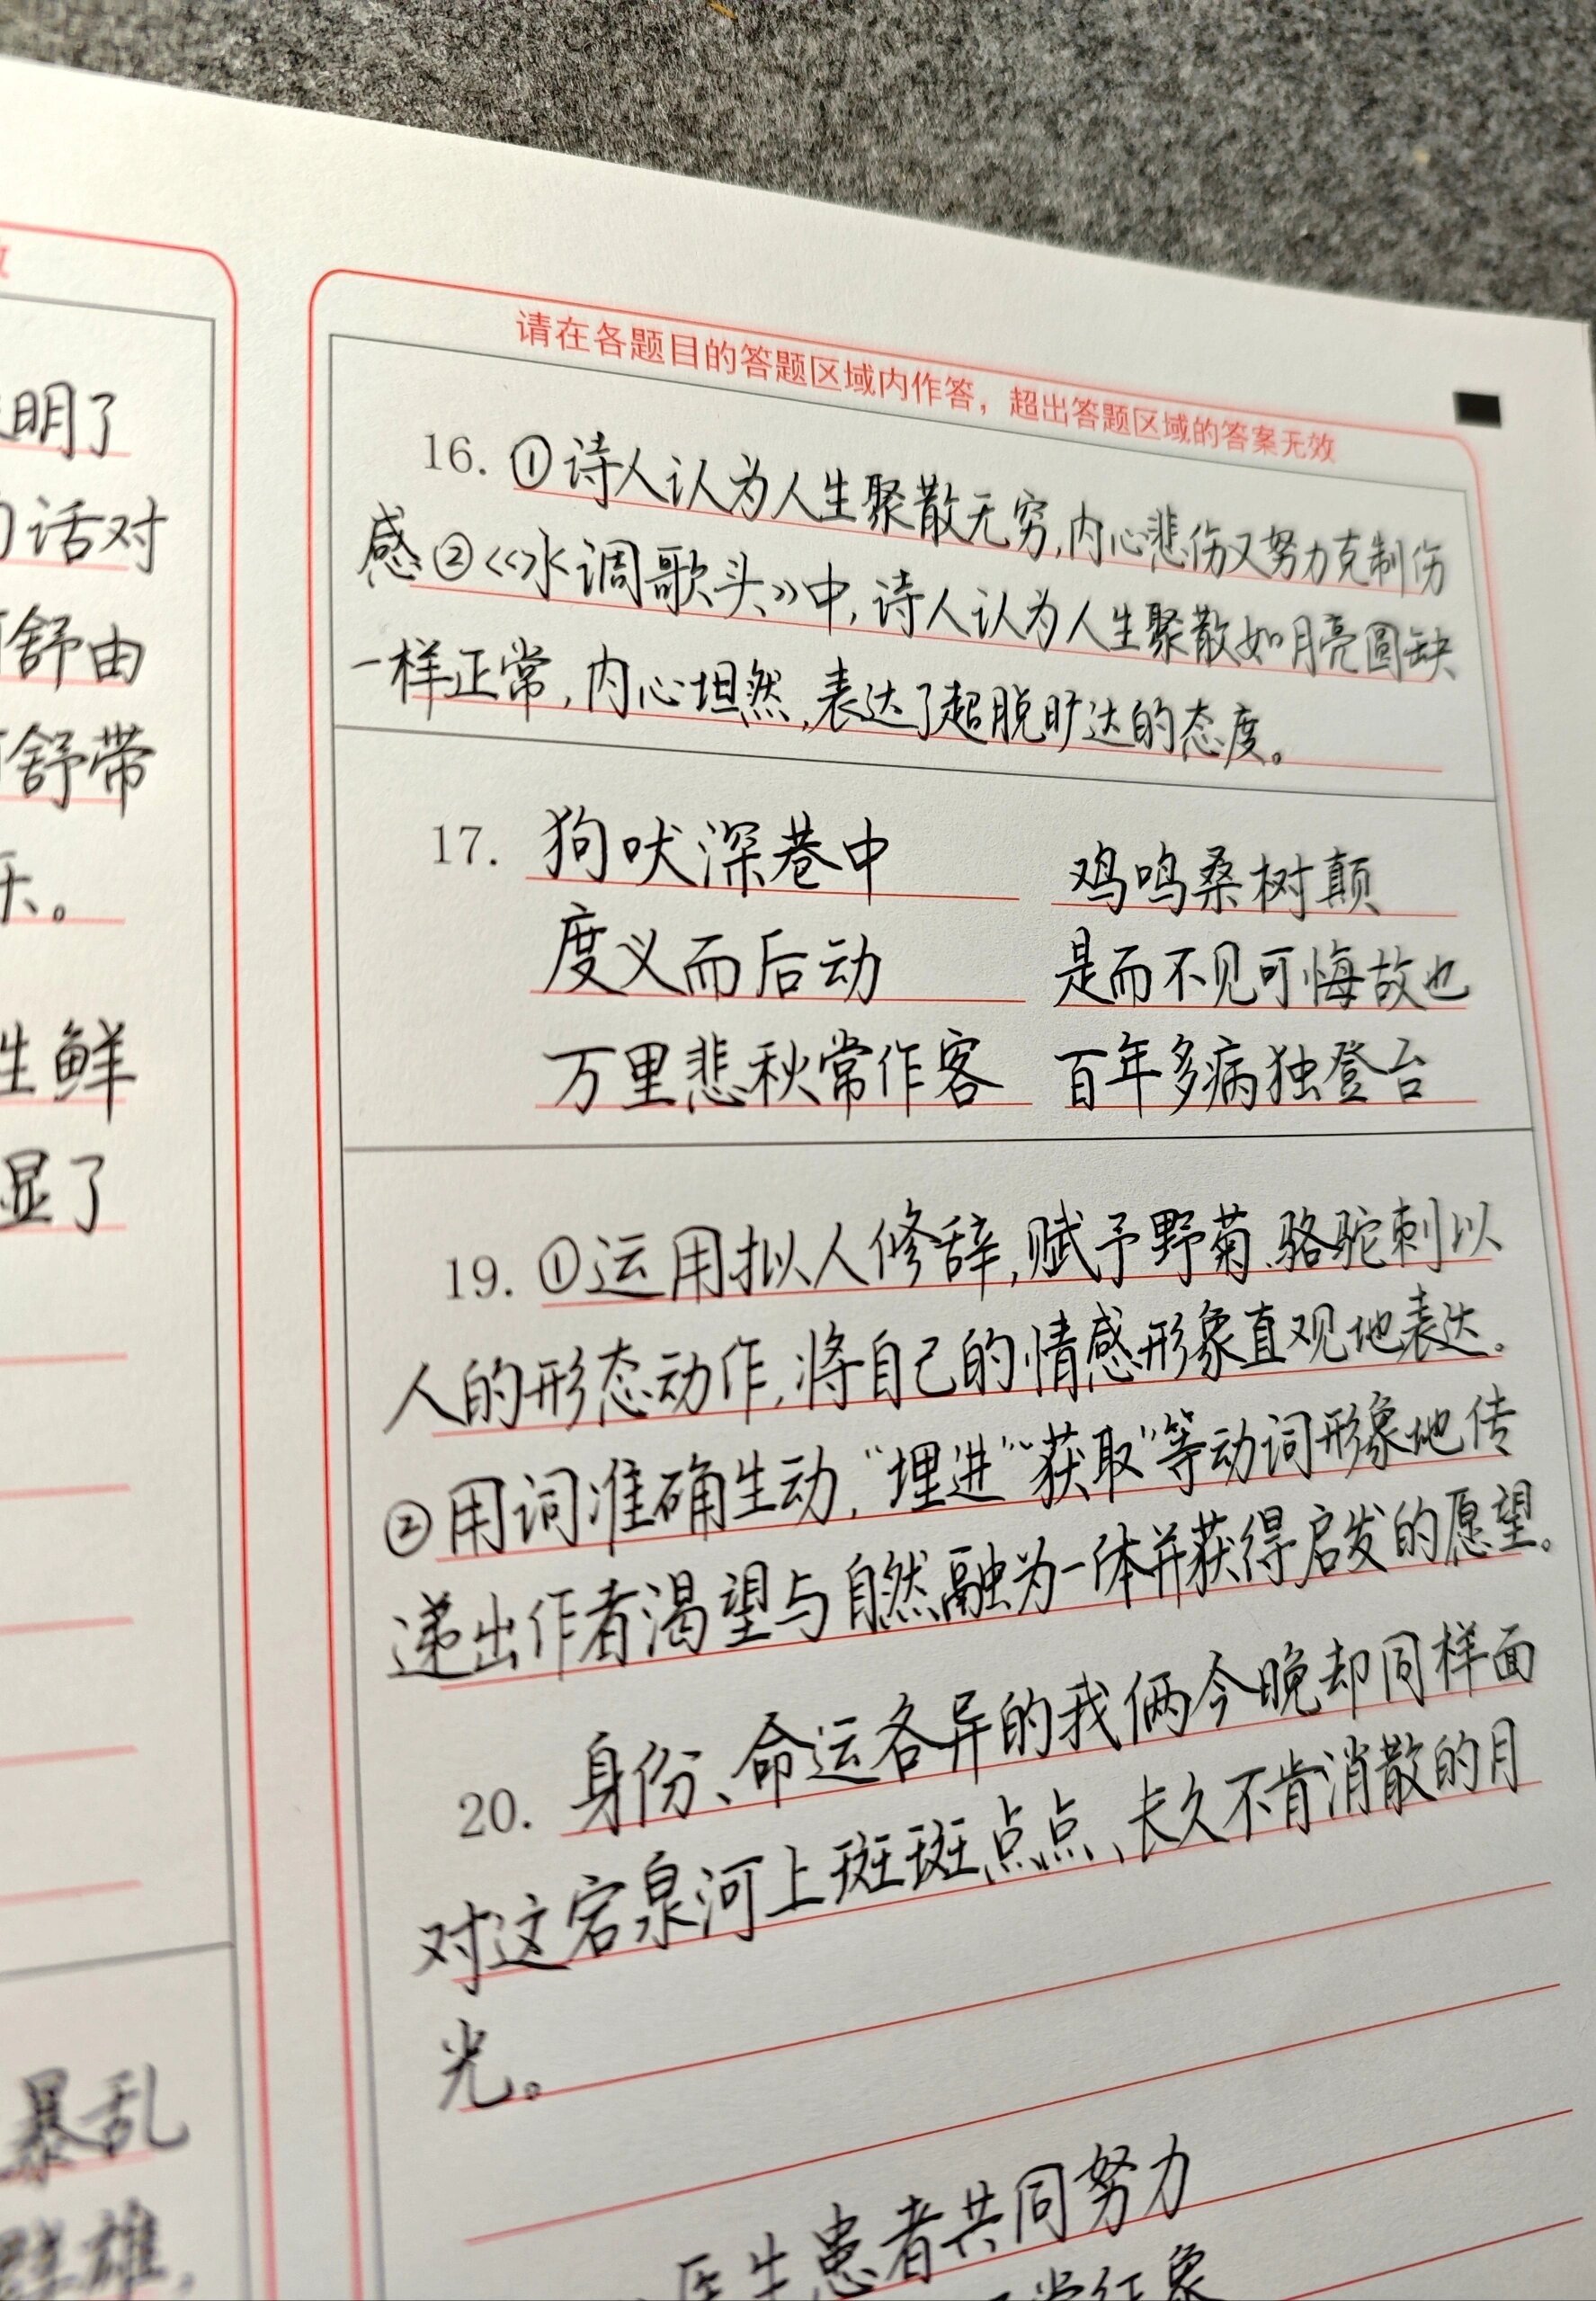 明了
话对
舒由
舒带
乐。
生鲜
显了
暴乱
群雄,
请在各题目的答题区域内作答，超出答题区域的答案无效
16. ①诗人认为人生聚散无穷,内心悲伤又努力克制伤
感②《水调歌头》中,诗人认为人生聚散如月亮圆缺
一样正常,内心坦然,表达了超脱旷达的态度。
17. 狗吠深巷中 鸡鸣桑树颠
度义而后动 是而不见可悔故也
万里悲秋常作客 百年多病独登台
19. ①运用拟人修辞,赋予野菊、骆驼刺以
人的形态动作,将自己的情感形象直观地表达。
②用词准确生动,“埋进”“获取”等动词形象地传
递出作者渴望与自然融为一体并获得启发的愿望。
20. 身份、命运各异的我俩今晚却同样面
对这宕泉河上斑斑点点、长久不肯消散的月
光。
医生患者共同努力